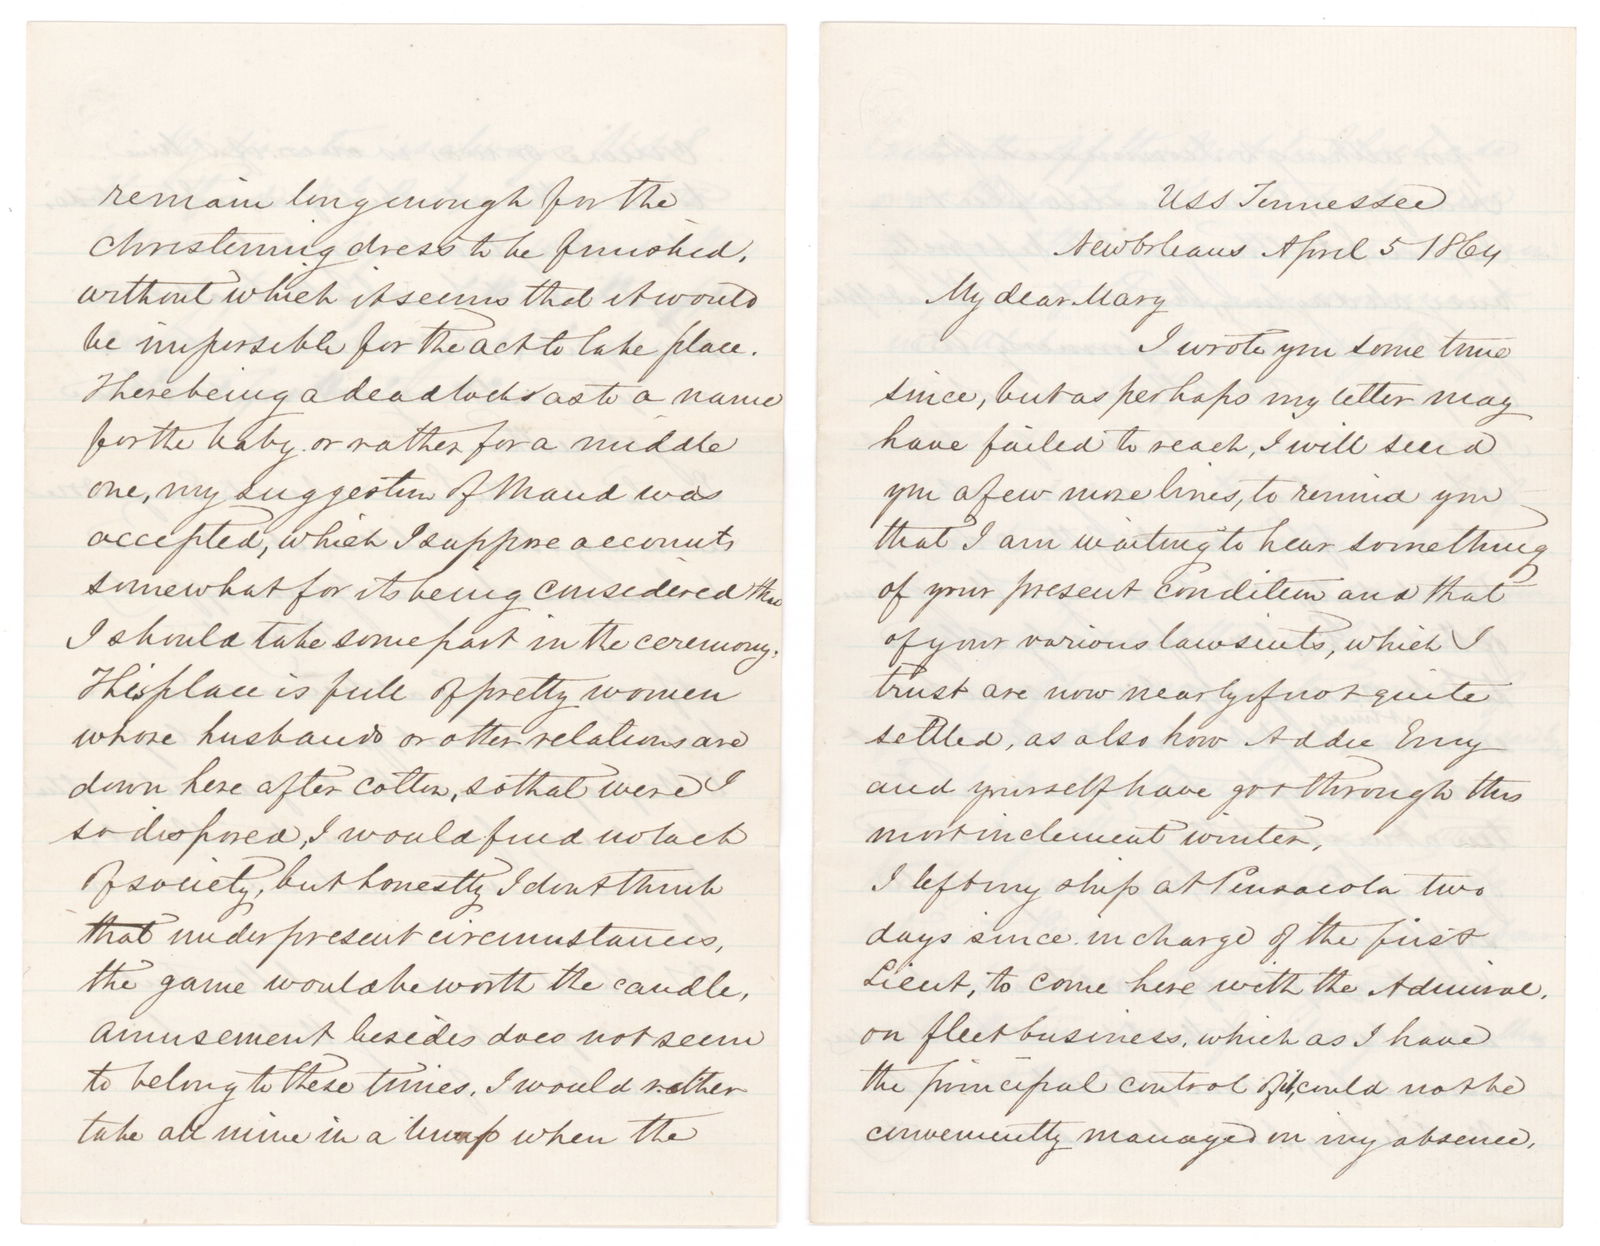 remain long enough for the
christening dress to be finished,
without which it seems that it would
be impossible for the act to take place.
There being a deadlock as to a name
for the baby or rather for a middle
one, my suggestion of Maud was
accepted, which I suppose accounts
somewhat for its being considered that
I should take some part in the ceremony.
This place is full of pretty women
whose husbands or other relations are
down here after cotton, so that were I
so disposed, I would find no lack
of society, but honestly I dont think
that under present circumstances,
the game would be worth the candle,
amusement besides does not seem
to belong to these times. I would rather
take all mine in a lump when the
USS Tennessee
New Orleans April 5 1864
My dear Mary
I wrote you some time
since, but as perhaps my letter may
have failed to reach, I will send
you a few more lines, to remind you
that I am waiting to hear something
of your present condition and that
of your various lawsuits, which I
trust are now nearly if not quite
settled, as also how Addie Emy
and yourself have got through this
most inclement winter.
I left my ship at Pensacola two
days since in charge of the first
Lieut, to come here with the Admiral.
on fleet business, which as I have
the principal control of it, could not be
conveniently managed in my absence.